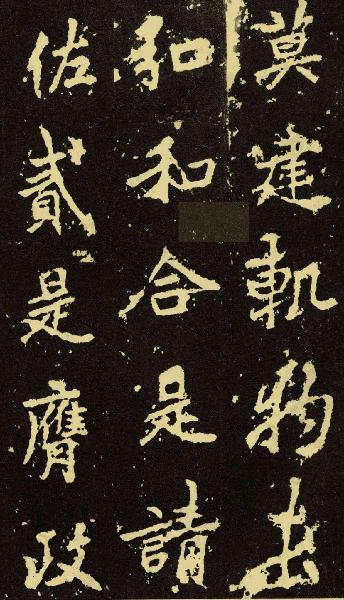 莫建軌物出
弘和合是請
佐貳是膺政